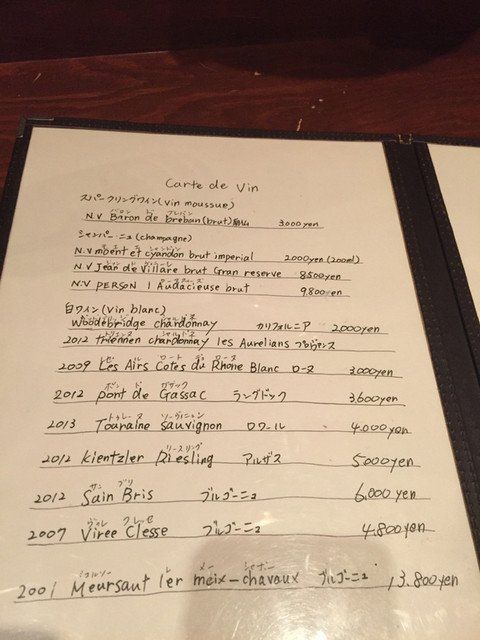 Carte de Vin
スパークリングワイン(vin mousseu)
N.V Baron de breban(brut) 3,000yen
シャンパーニュ(champagne)
N.V mbent et cyandon brut imperial 2000yen (200ml)
N.V Jean de Villare brut Gran reserve 8,500yen
N.V PERSON l'Audacieuse brut 9,800yen
白ワイン(vin blanc)
Woodebridge chardonnay カリフォルニア 2,000yen
2012 triennen chardonnay les Aurelians プロヴァンス
2009 Les Airs Cotes du Rhone Blanc ローヌ 3,000yen
2012 pont de Gassac ラングドック 3,600yen
2013 Touraine Sauvignon ロワール 4,000yen
2012 kientzler Riesling アルザス 5000yen
2012 Sain Bris ブルゴーニュ 6,000yen
2007 Viree Clesse ブルゴーニュ 4,800yen
2001 Meursaut 1er meix-chavaux ブルゴーニュ 13,800yen